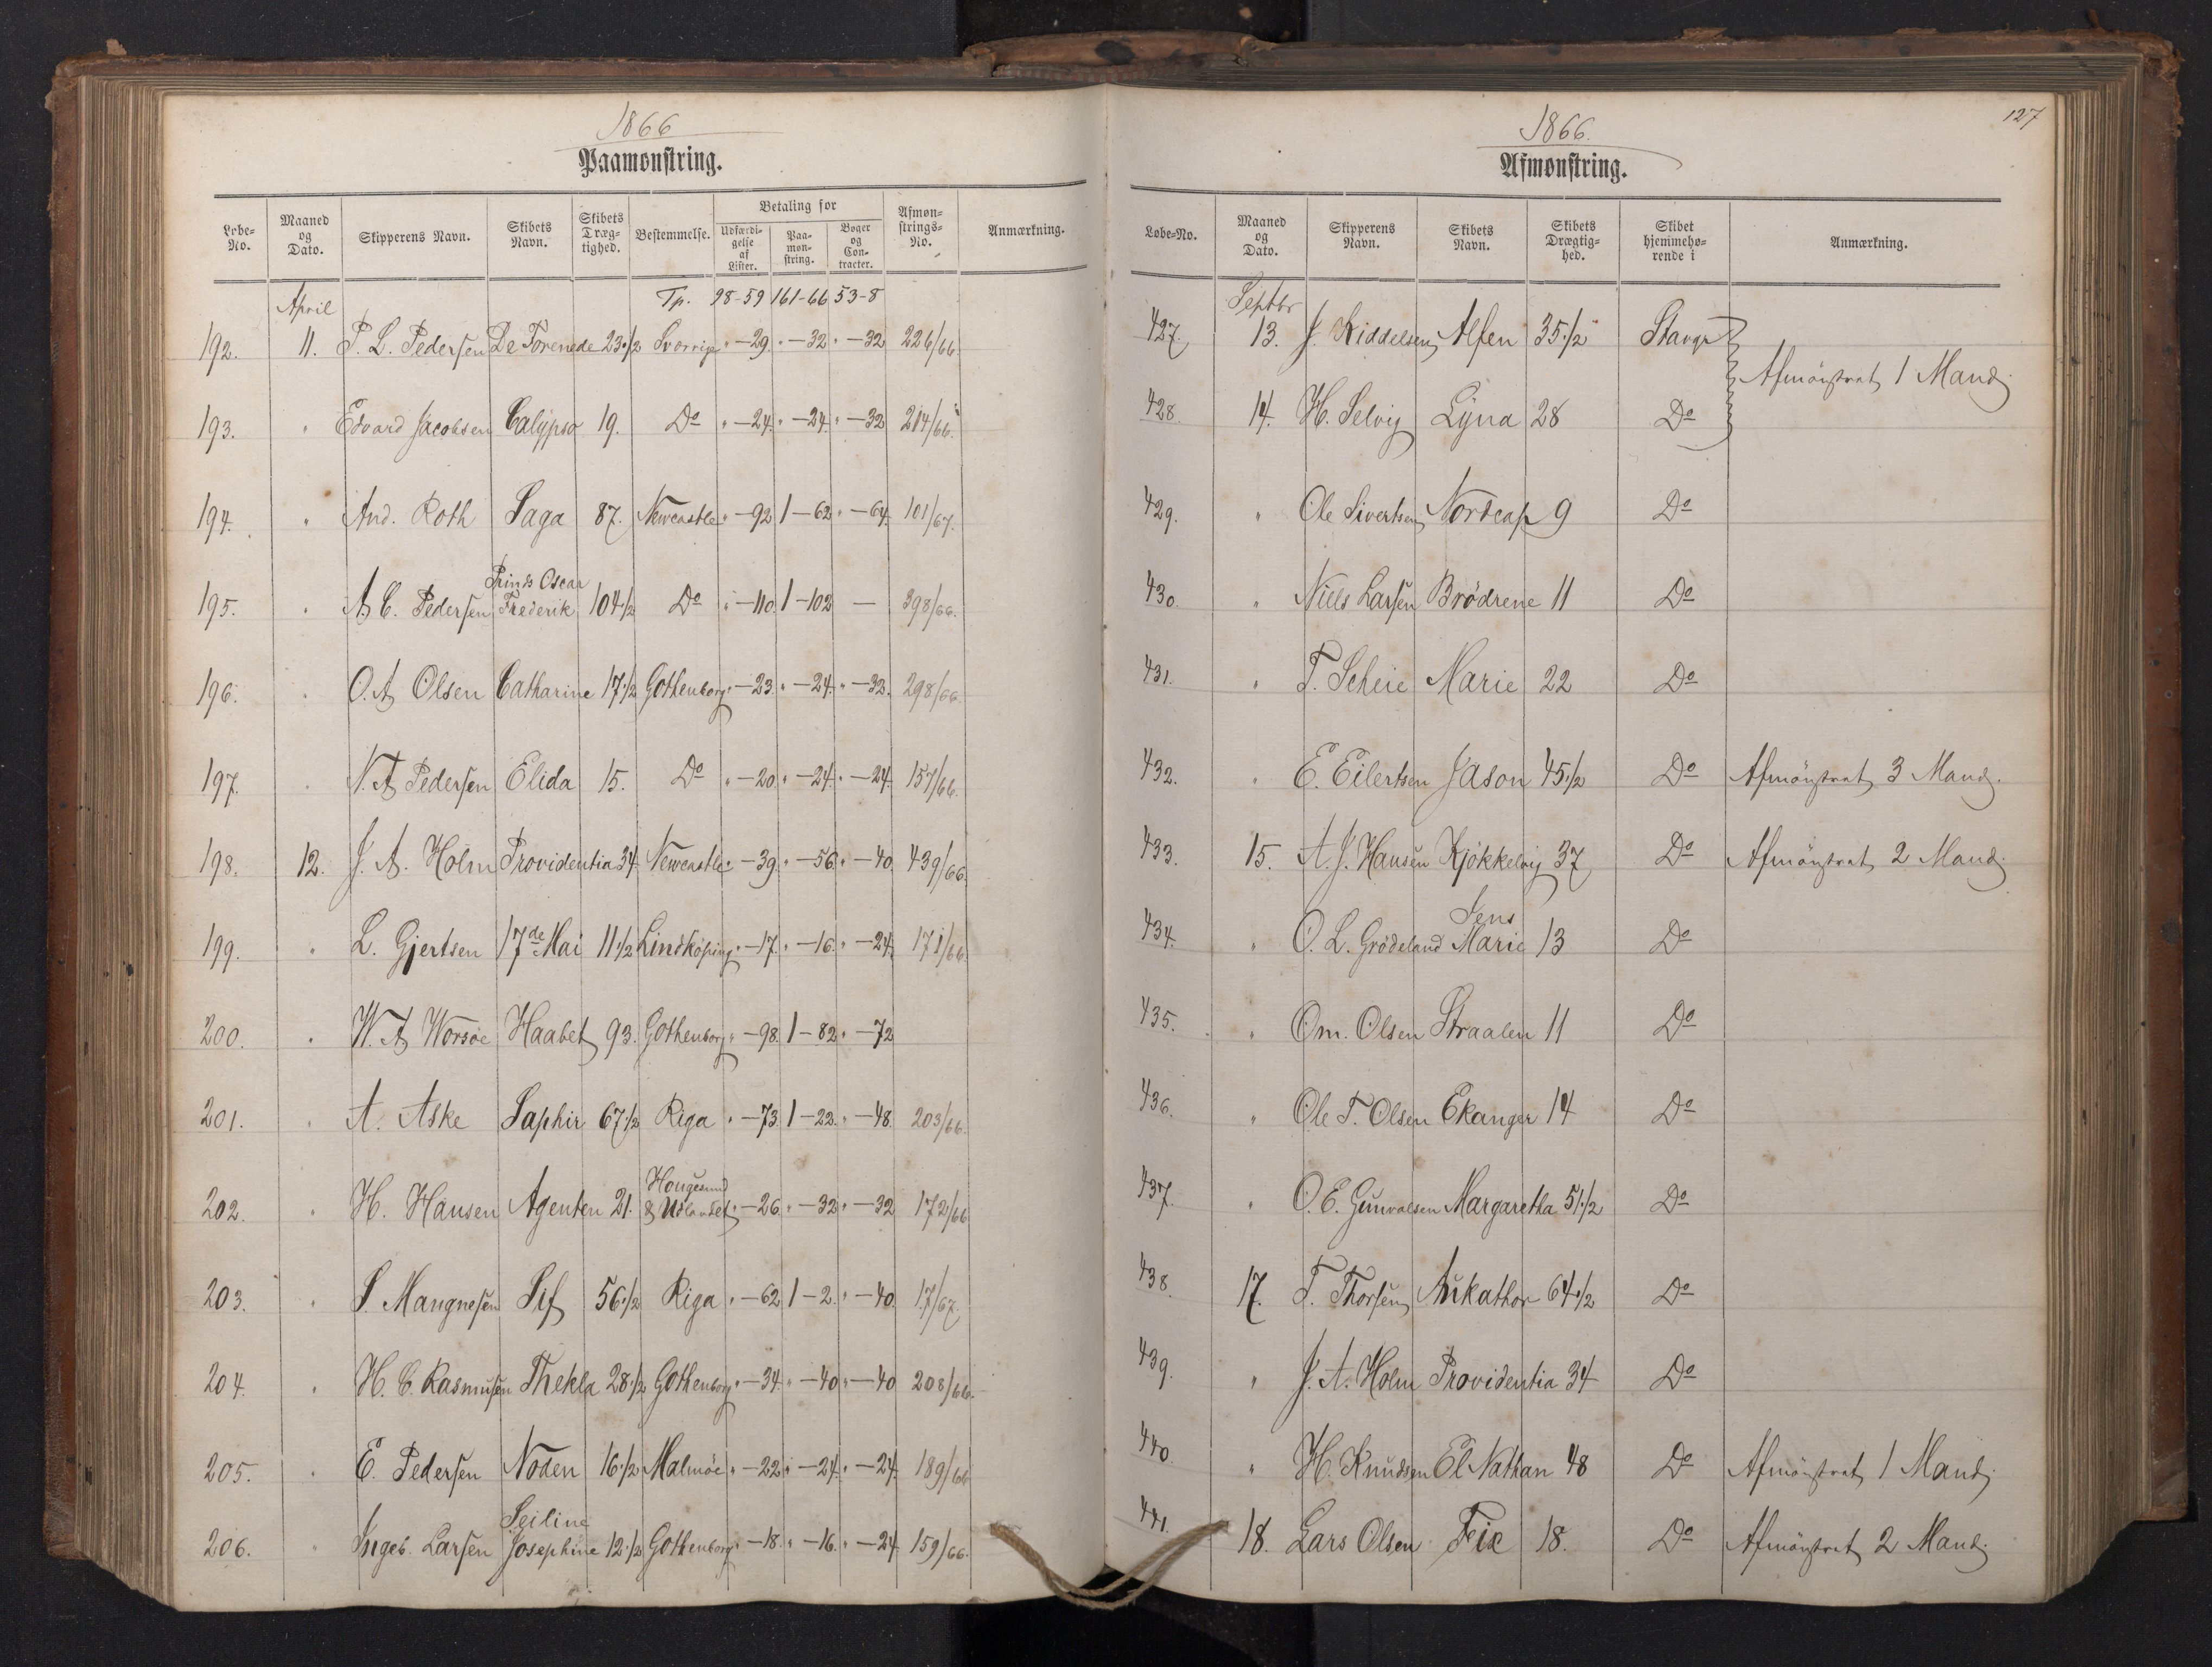 1866
Paamønstring.
Løbe-No. Maaned og Dato. Skipperens Navn. Skibets Navn. Skibets Dræg-tighed. Bestemmelse. Betaling for Udfærdi-gelse af Lister. Paa-møn-string. Bøger og Con-tracter. Afmøn-strings-No. Anmærkning.
April Tp. 98-59 161-66 53-8
192. 11. P. L. Pedersen De Forenede 23 1/2 Sverrige " -29. " -32 " -32 226/66.
193. " Edvard Jacobsen Calypso 19. Do " -24. " -24. " -32 214/66.
194. " And. Roth Saga 87. Newcastle " -92 1 -62 " -64. 101/67.
Prinds Oscar
195. " A. C. Pedersen Frederik 104 1/2 Do " -110. 1 -102 — 398/66.
196. " O. A. Olsen Catharine 17 1/2 Gothenborg " -23. " -24. " -32. 298/66.
197. " N. A. Pedersen Elida 15. Do " -20. " -24. " -24. 157/66.
198. 12. J. A. Holm Providentia 34 Newcastle " -39. " -56. " -40. 439/66.
199. " L. Gjertsen 17de Mai 11 1/2 Lindköping " -17. " -16. " -24. 171/66.
200. " W. A. Worsöe Haabet 93. Gothenborg " -98. 1 -82 " -72
201. " A. Aske Saphir 67 1/2 Riga " -73. 1 -22. " -48. 203/66.
Hougesund
202. " H. Hansen Agenten 21. & Udlandet " -26. " -32 " -32 172/66
203. " S. Mangnesen Sif 56 1/2 Riga " -62 1 -2. " -40. 17/67.
204. " H. C. Rasmusen Thekla 28 1/2 Gothenborg " -34. " -40 " -40 208/66.
205. " E. Pedersen Noden 16 1/2 Malmöe " -22 " -24. " -24. 189/66
Seiline
206. " Ingeb. Larsen Josephine 12 1/2 Gothenborg " -18. " -16. " -24. 159/66.
127
1866.
Afmønstring.
Løbe-No. Maaned og Dato. Skipperens Navn. Skibets Navn. Skibets Drægtig-hed. Skibet hjemmehø-rende i Anmærkning.
Septbr
427. 13. J. Kiddelsen Alfen 35 1/2 Stavgr
Afmönstret 1 Mand.
428. 14. H. Selvig Lyna 28 Do
429. " Ole Sivertsen Nordcap 9 Do
430. " Niels Larsen Brödrene 11 Do
431. " T. Scheie Marie 22 Do
432. " E. Eilertsen Jason 45 1/2 Do Afmönstret 3 Mand.
433. 15. A. J. Hansen Kjökkelvig 37 Do Afmönstret 2 Mand.
Jens
434. " O. L. Grödeland Marie 13 Do
435. " Om. Olsen Straalen 11 Do
436. " Ole T. Olsen Ekanger 14 Do
437. " O. E. Gunvalsen Margaretha 51 1/2 Do
438. 17. T. Thorsen Aukathor 64 1/2 Do
439. " J. A. Holm Providentia 34 Do
440. " H. Knudsen El Nathan 48 Do Afmönstret 1 Mand.
441. 18. Lars Olsen Feie 18. Do Afmönstret 2 Mand.